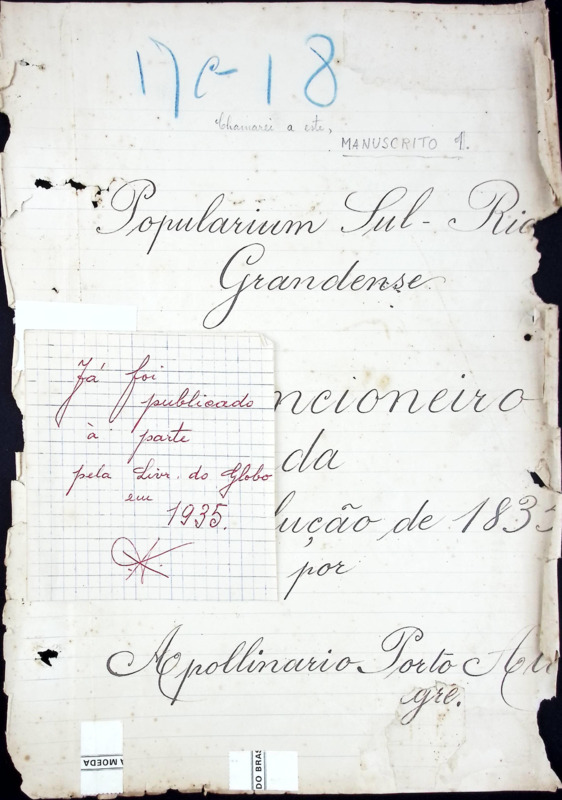 17c-18
Chamarei a este,
MANUSCRITO 1.
Popularium Sul-Rio
Grandense
Já foi
publicado
à parte
pela Livr. do Globo
em
1935.
ncioneiro
da
lução de 1835
por
Apollinario Porto Ale
gre.
A MOEDA
DO BRAS